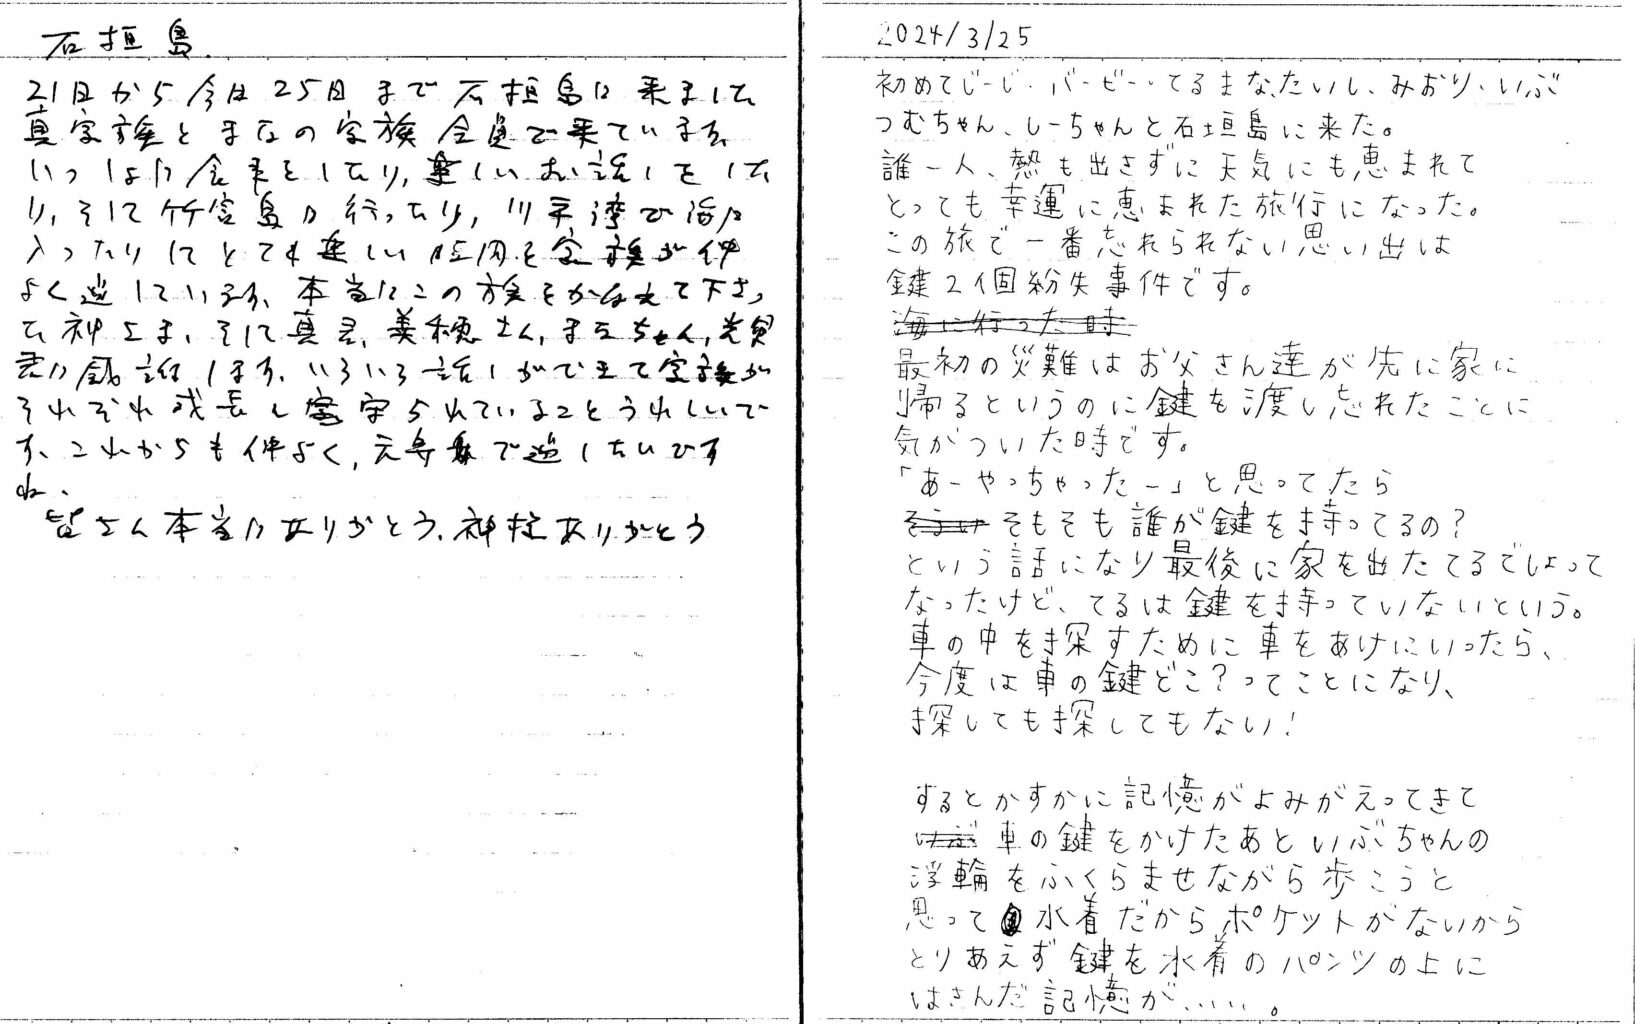 石垣島.
21日から今日25日まで石垣島に来ました
真家族とまなの家族全員で来ています。
いっしょに食事をしたり、楽しいお話しをした
り、そして竹富島に行ったり、川平湾で海に
入ったりしてとても楽しい時間を家族が仲
よく過しています。本当にこの旅をかなえて下さっ
た神さま、そして真君、美穂さん、まなちゃん、
君に感謝します。いろいろ話しができて家族が
それぞれ成長し守られていることうれしいで
す。これからも仲よく、元気で過したいです
ね。
皆さん本当にありがとう。神様ありがとう
2024/3/25
初めてじーじ・バービー・てるまな、たいし、みおり・いぶ
つむちゃん、しーちゃんと石垣島に来た。
誰一人、熱も出さずに天気にも恵まれて
とっても幸運に恵まれた旅行になった。
この旅で一番忘れられない思い出は
鍵2個紛失事件です。
海に行った時
最初の災難はお父さん達が先に家に
帰るというのに鍵を渡し忘れたことに
気がついた時です。
「あーやっちゃったー」と思ってたら
そもそも誰が鍵を持ってるの?
という話になり最後に家を出たてるでしょって
なったけど、てるは鍵を持っていないという。
車の中を探すために車をあけにいったら、
今度は車の鍵どこ?ってことになり、
探しても探してもない!
するとかすかに記憶がよみがえってきて
いぶ 車の鍵をかけたあといぶちゃんの
浮輪をふくらませながら歩こうと
思って水着だからポケットがないから
とりあえず鍵を水着のパンツの上に
はさんだ記憶が.....。